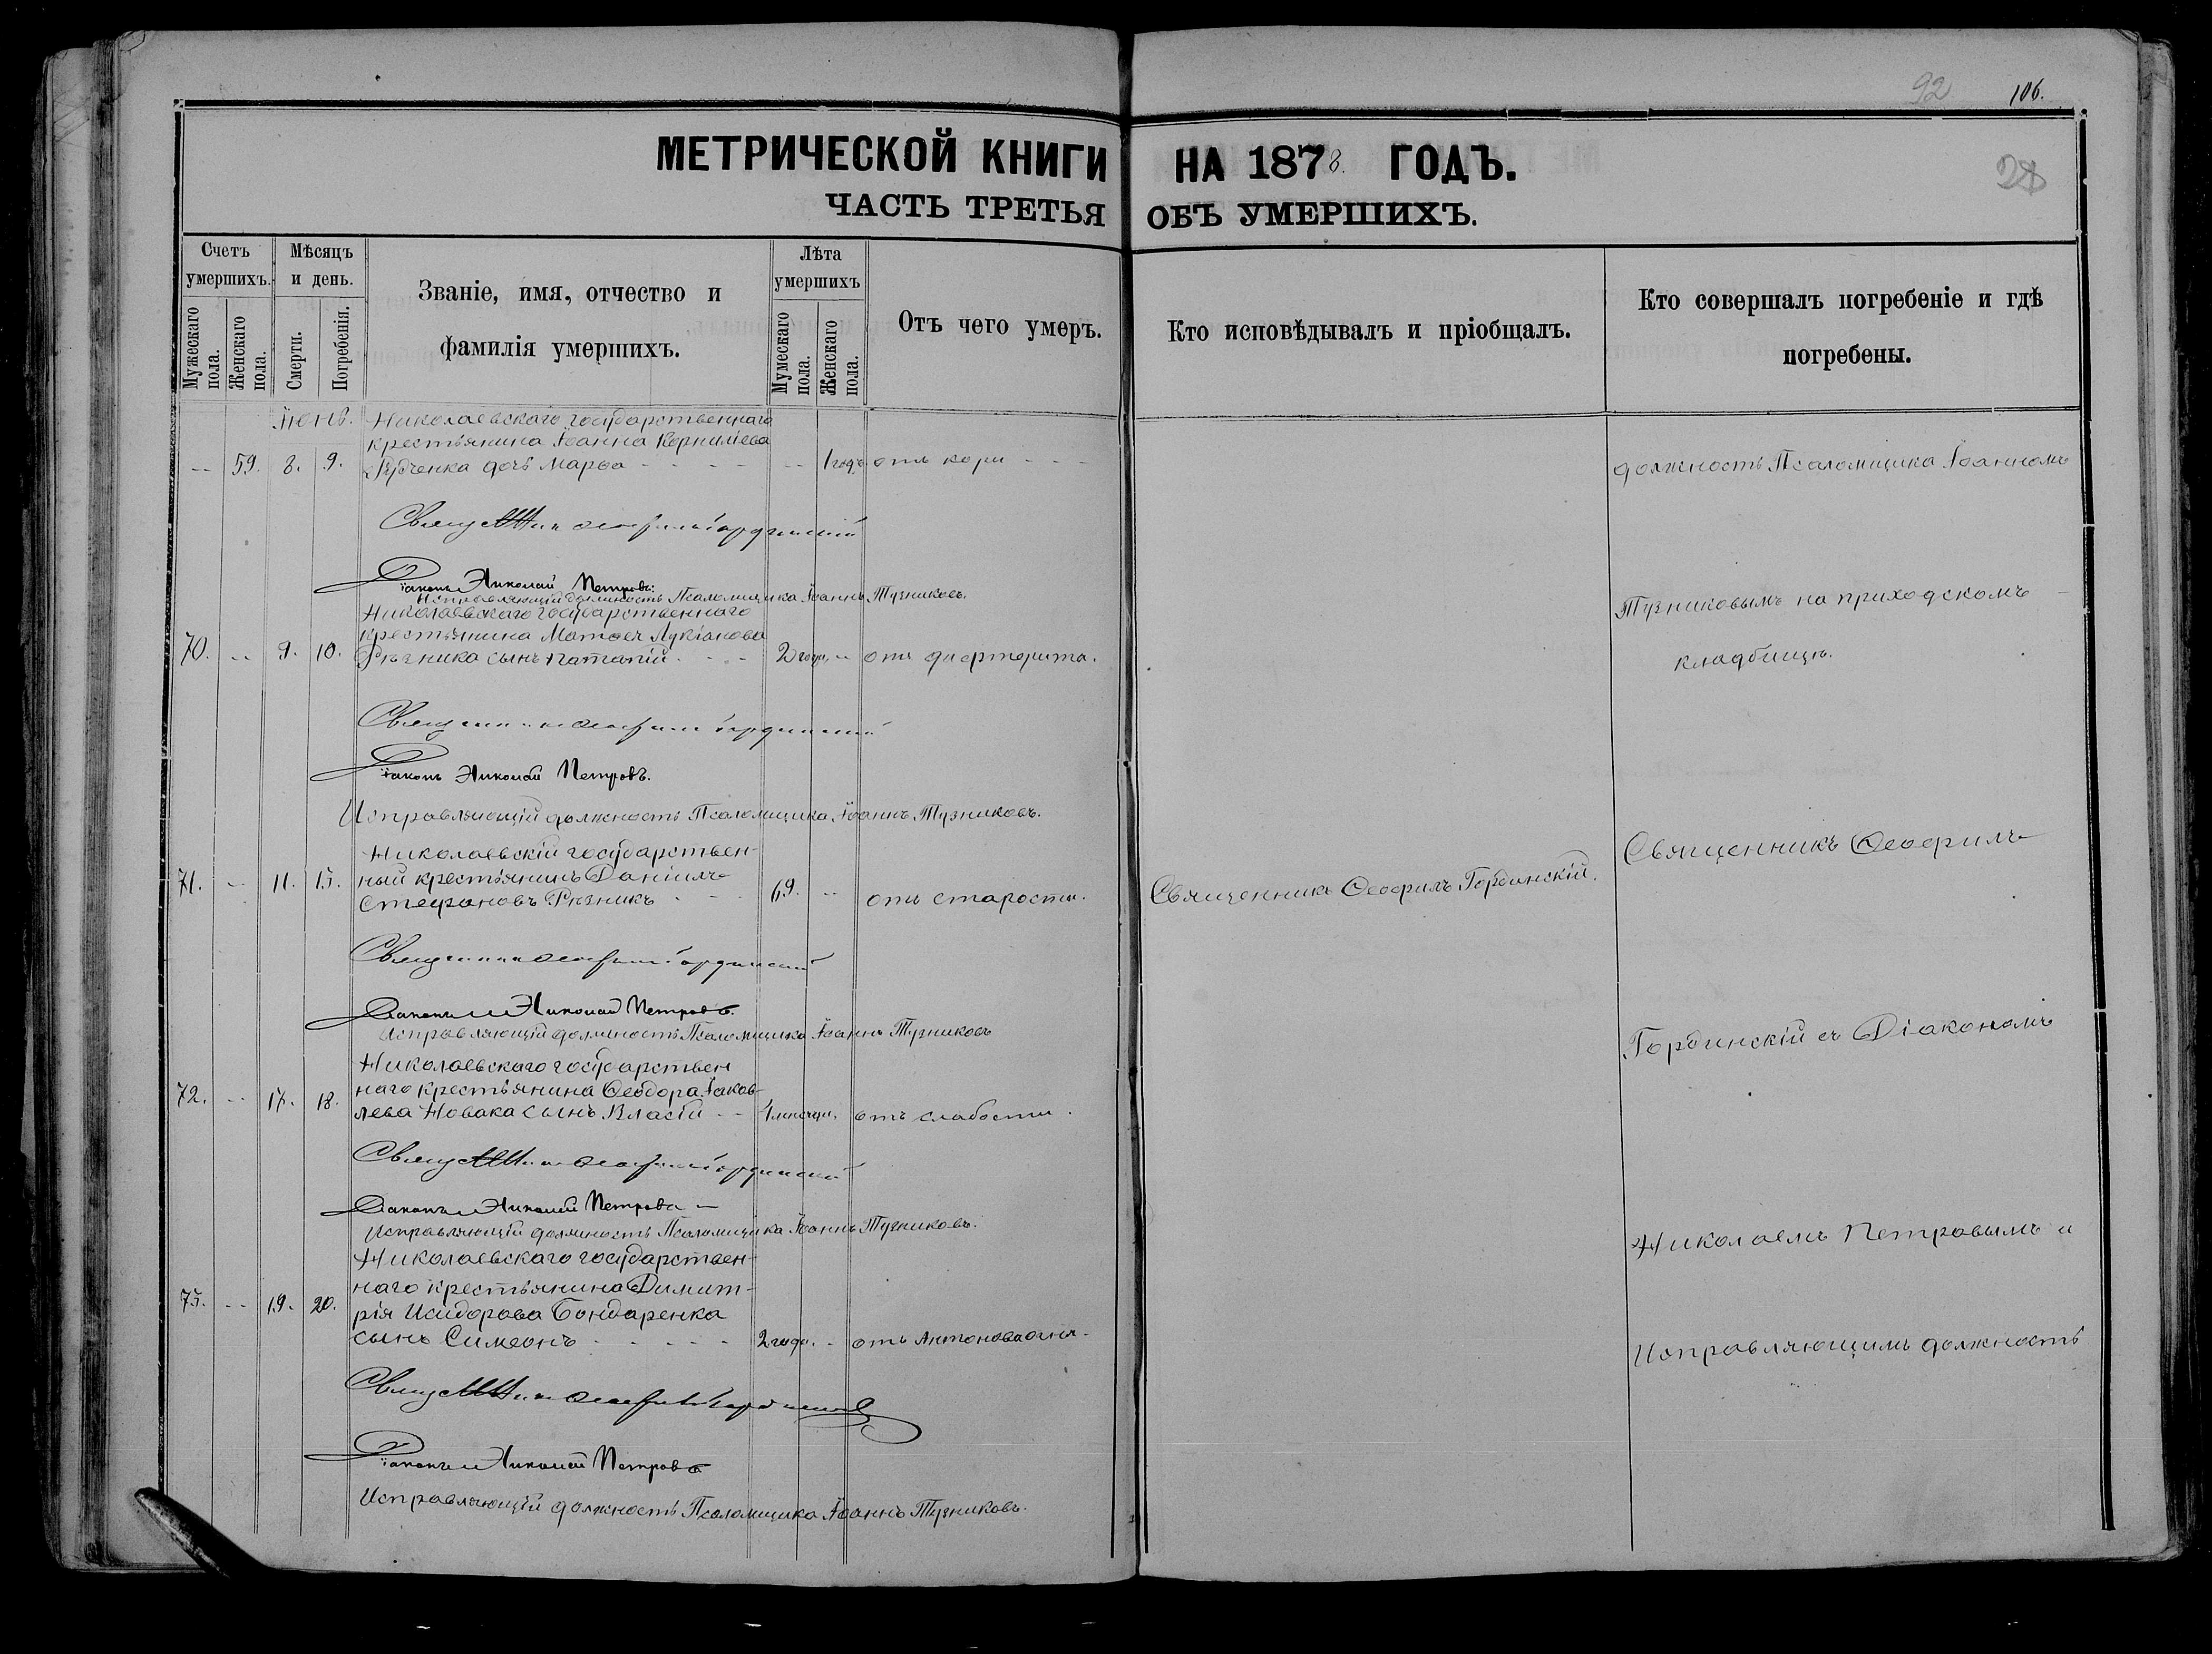 92 106.
28
МЕТРИЧЕСКОЙ КНИГИ НА 1878. ГОДЪ.
ЧАСТЬ ТРЕТЬЯ ОБЪ УМЕРШИХЪ.
Счетъ умершихъ.
Мужескаго пола.
Женскаго пола.
Мѣсяцъ и день.
Смерти.
Погребенія.
Званіе, имя, отчество и
фамилія умершихъ.
Лѣта умершихъ
Мужескаго пола.
Женскаго пола.
Отъ чего умеръ.
Кто исповѣдывалъ и пріобщалъ.
Кто совершалъ погребеніе и гдѣ
погребены.
Іюнь. Николаевскаго государственнаго
крестьянина Іоанна Корниліева
-- 59. 8. 9. дочь Марѳа -- 1 годъ отъ кори
Священникъ Ѳеофилъ Гординскій
Діаконъ Николай Петровъ.
Исправляющій должность Псаломщика Іоаннъ Тузниковъ.
Николаевскаго государственнаго
крестьянина Матѳея Лукіанова
70. -- 9. 10. Рѣзника сынъ Патапій 2 года -- отъ дифтерита.
Священникъ Ѳеофилъ Гординскій
Діаконъ Николай Петровъ.
Исправляющій должность Псаломщика Іоаннъ Тузниковъ.
Николаевскій государствен-
71. -- 11. 13. ный крестьянинъ Даніилъ
Стефановъ Рѣзникъ 69. -- отъ старости.
Священникъ Ѳеофилъ Гординскій
Діаконъ Николай Петровъ.
Исправляющій должность Псаломщика Іоаннъ Тузниковъ
Николаевскаго государствен
72. -- 17. 18. наго крестьянина Ѳеодора Іаков-
лева Новака сынъ Власій -- 1 мѣсяца. отъ слабости.
Священникъ Ѳеофилъ Гординскій
Діаконъ Николай Петровъ
Исправляющій должность Псаломщика Іоаннъ Тузниковъ.
Николаевскаго государствен-
наго крестьянина Димит-
73. -- 19. 20. рія Исидорова Бондаренка
сынъ Симеонъ 2 года. - отъ Антонова огня.
Священникъ Ѳеофилъ Гординскій
Діаконъ Николай Петровъ
Исправляющій должность Псаломщика Іоаннъ Тузниковъ.
Священникъ Ѳеофилъ Гординскій.
должность Псаломщика Іоанномъ
Тузниковымъ на приходскомъ
кладбищѣ.
Священникъ Ѳеофилъ
Гординскій съ Діакономъ
Николаемъ Петровымъ и
Исправляющимъ должность